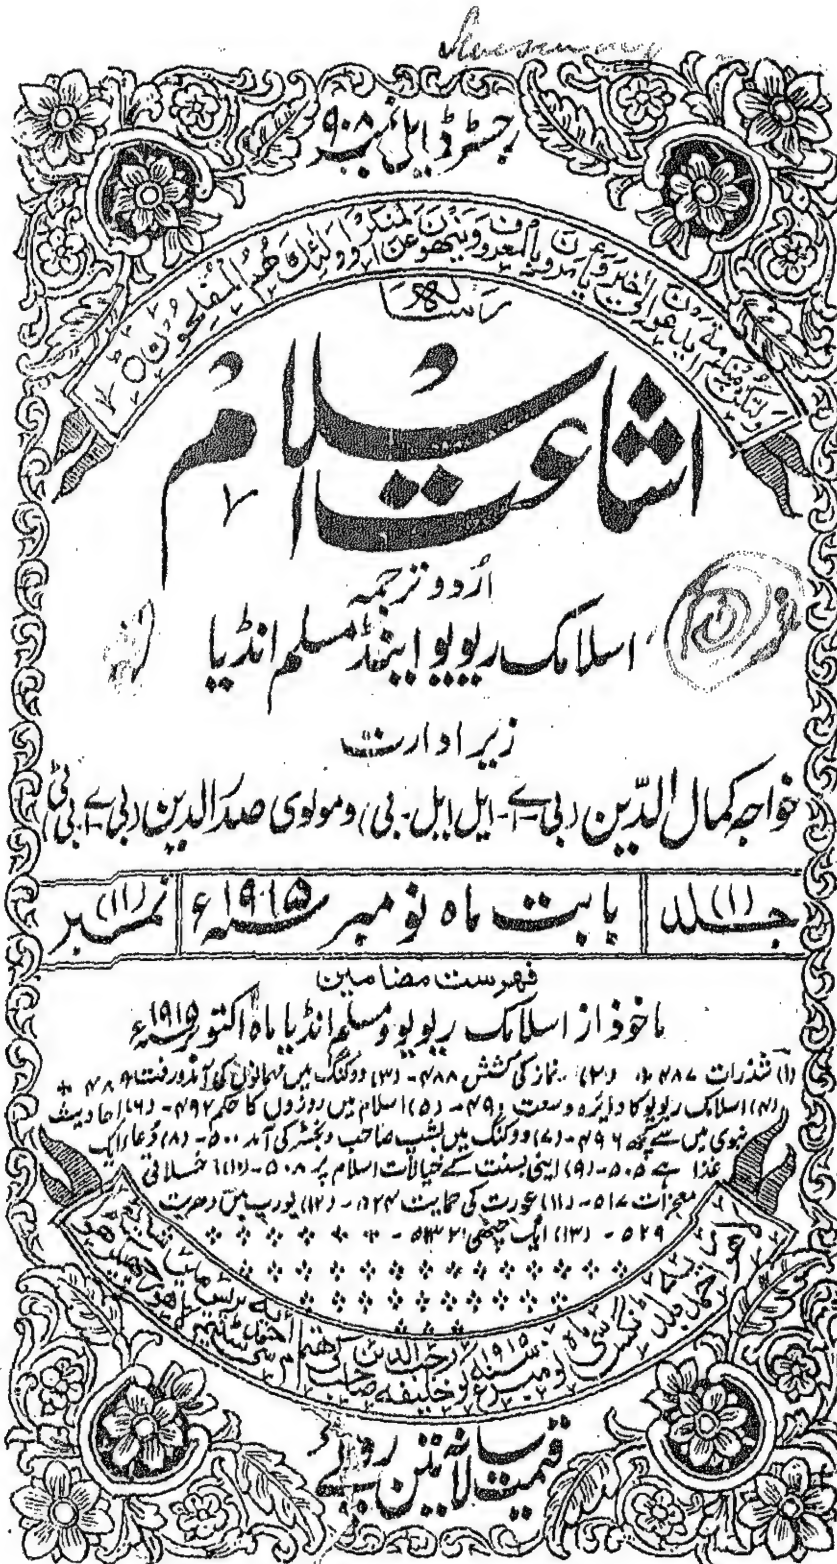 رجسٹرڈ ایل نمبر ۹۰۸
ولتکن منکم امة یدعون الی الخیر ویامرون بالمعروف وینهون عن المنکر واولئک هم المفلحون
رسالہ
اشاعت اسلام
اردو ترجمہ
اسلامک ریویو اینڈ مسلم انڈیا
زیر ادارت
خواجہ کمال الدین (بی-اے-ایل ایل-بی) و مولوی صدرالدین (بی-اے-بی ٹی)
جلد (۱) بابت ماہ نومبر ۱۹۱۵ء نمبر (۱۱)
فہرست مضامین
ماخوذ از اسلامک ریویو و مسلم انڈیا ماہ اکتوبر ۱۹۱۵ء
(۱) شذرات ۴۸۷ - (۲) نماز کی کشش ۴۸۸ - (۳) ووکنگ میں مہمانوں کی آمد و رفت ۴۸۹
(۴) اسلامک ریویو کا دائرہ وسعت ۴۹۰ - (۵) اسلام میں روزوں کا حکم ۴۹۲ - (۶) احادیث
نبوی میں سے کچھ ۴۹۶ - (۷) ووکنگ میں بشپ صاحب ونچسٹر کی آمد ۵۰۰ - (۸) دعا ایک
غذا ہے ۵۰۵ - (۹) اینی بسنت کے خیالات اسلام پر ۵۰۸ - (۱۰) اخلاقی
معجزات ۵۱۷ - (۱۱) عورت کی حمایت ۵۲۴ - (۱۲) یورپ میں دہریت
۵۲۹ - (۱۳) ایک چٹھی ۵۳۲
نومبر ۱۹۱۵
قیمت سالانہ تین روپے